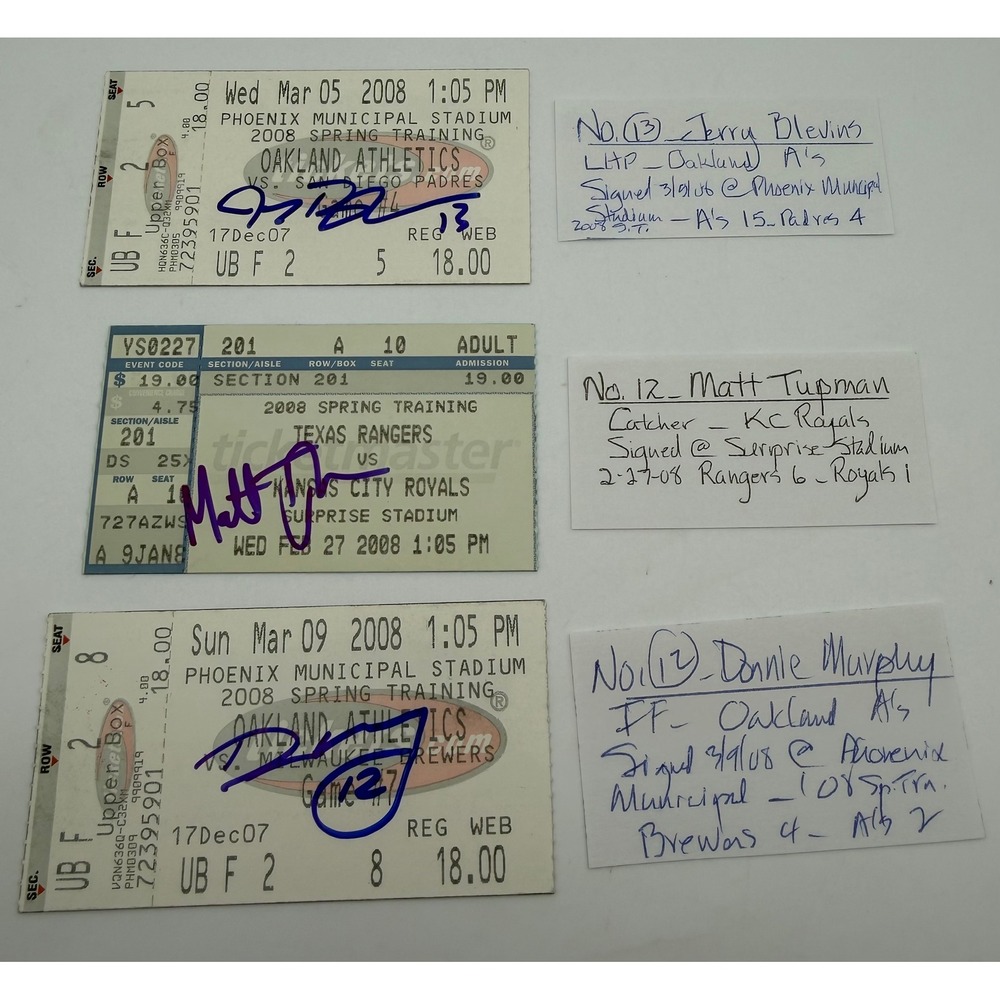 SEAT 5
ROW 2
SEC. UB F
UpperBox
HQN636C-Q32XM
PHM0305 9909919
72395901
4.80
18.00
Wed Mar 05 2008 1:05 PM
PHOENIX MUNICIPAL STADIUM
2008 SPRING TRAINING
OAKLAND ATHLETICS
VS. SAN DIEGO PADRES
Game #4
13
17Dec07 REG WEB
UB F 2 5 18.00
No. 13 - Jerry Blevins
LHP - Oakland A's
Signed 3/9/08 @ Phoenix Municipal
Stadium - A's 15 - Padres 4
2008 S.T.
YS0227 201 A 10 ADULT
EVENT CODE SECTION/AISLE ROW/BOX SEAT ADMISSION
$ 19.00 SECTION 201 19.00
$ 4.75 2008 SPRING TRAINING
SECTION/AISLE
201 TEXAS RANGERS
ticketmaster
DS 25X VS
ROW SEAT
A 10 KANSAS CITY ROYALS
Matt
727AZWS SURPRISE STADIUM
A 9JAN8 WED FEB 27 2008 1:05 PM
No. 12 - Matt Tupman
Catcher - KC Royals
Signed @ Serprise Stadium
2-27-08 Rangers 6 - Royals 1
SEAT 8
ROW 2
SEC. UB F
UpperBox
PHM0309 9909919
72395901
4.80
18.00
Sun Mar 09 2008 1:05 PM
PHOENIX MUNICIPAL STADIUM
2008 SPRING TRAINING
OAKLAND ATHLETICS
VS. MILWAUKEE BREWERS
Game #7
12
17Dec07 REG WEB
UB F 2 8 18.00
No. 12 - Donnie Murphy
IF - Oakland A's
Signed 3/9/08 @ Phoenix
Municipal - 108 Sp. Trn.
Brewers 4 - A's 2